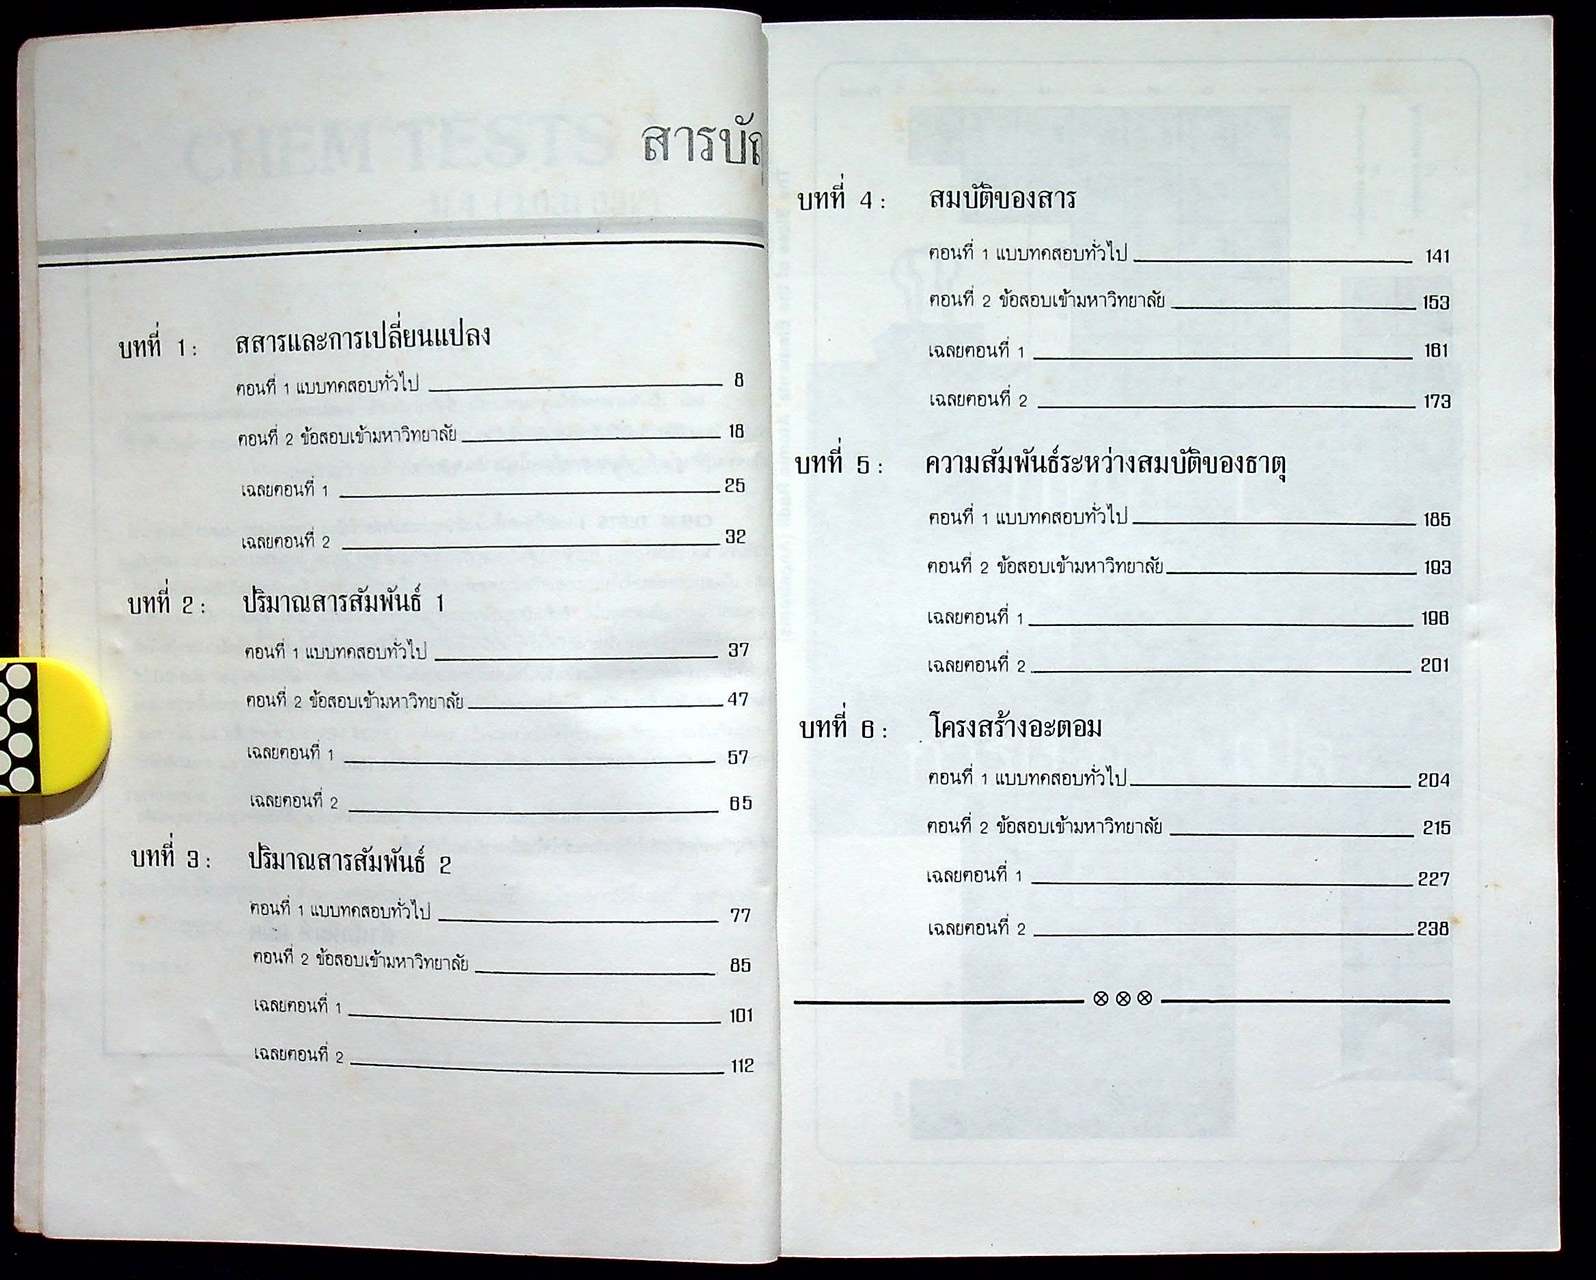 สารบัญ
บทที่ 1 : สสารและการเปลี่ยนแปลง
ตอนที่ 1 แบบทดสอบทั่วไป 8
ตอนที่ 2 ข้อสอบเข้ามหาวิทยาลัย 18
เฉลยตอนที่ 1 25
เฉลยตอนที่ 2 32
บทที่ 2 : ปริมาณสารสัมพันธ์ 1
ตอนที่ 1 แบบทดสอบทั่วไป 37
ตอนที่ 2 ข้อสอบเข้ามหาวิทยาลัย 47
เฉลยตอนที่ 1 57
เฉลยตอนที่ 2 65
บทที่ 3 : ปริมาณสารสัมพันธ์ 2
ตอนที่ 1 แบบทดสอบทั่วไป 77
ตอนที่ 2 ข้อสอบเข้ามหาวิทยาลัย 85
เฉลยตอนที่ 1 101
เฉลยตอนที่ 2 112
บทที่ 4 : สมบัติของสาร
ตอนที่ 1 แบบทดสอบทั่วไป 141
ตอนที่ 2 ข้อสอบเข้ามหาวิทยาลัย 153
เฉลยตอนที่ 1 161
เฉลยตอนที่ 2 173
บทที่ 5 : ความสัมพันธ์ระหว่างสมบัติของธาตุ
ตอนที่ 1 แบบทดสอบทั่วไป 185
ตอนที่ 2 ข้อสอบเข้ามหาวิทยาลัย 193
เฉลยตอนที่ 1 198
เฉลยตอนที่ 2 201
บทที่ 6 : โครงสร้างอะตอม
ตอนที่ 1 แบบทดสอบทั่วไป 204
ตอนที่ 2 ข้อสอบเข้ามหาวิทยาลัย 215
เฉลยตอนที่ 1 227
เฉลยตอนที่ 2 238